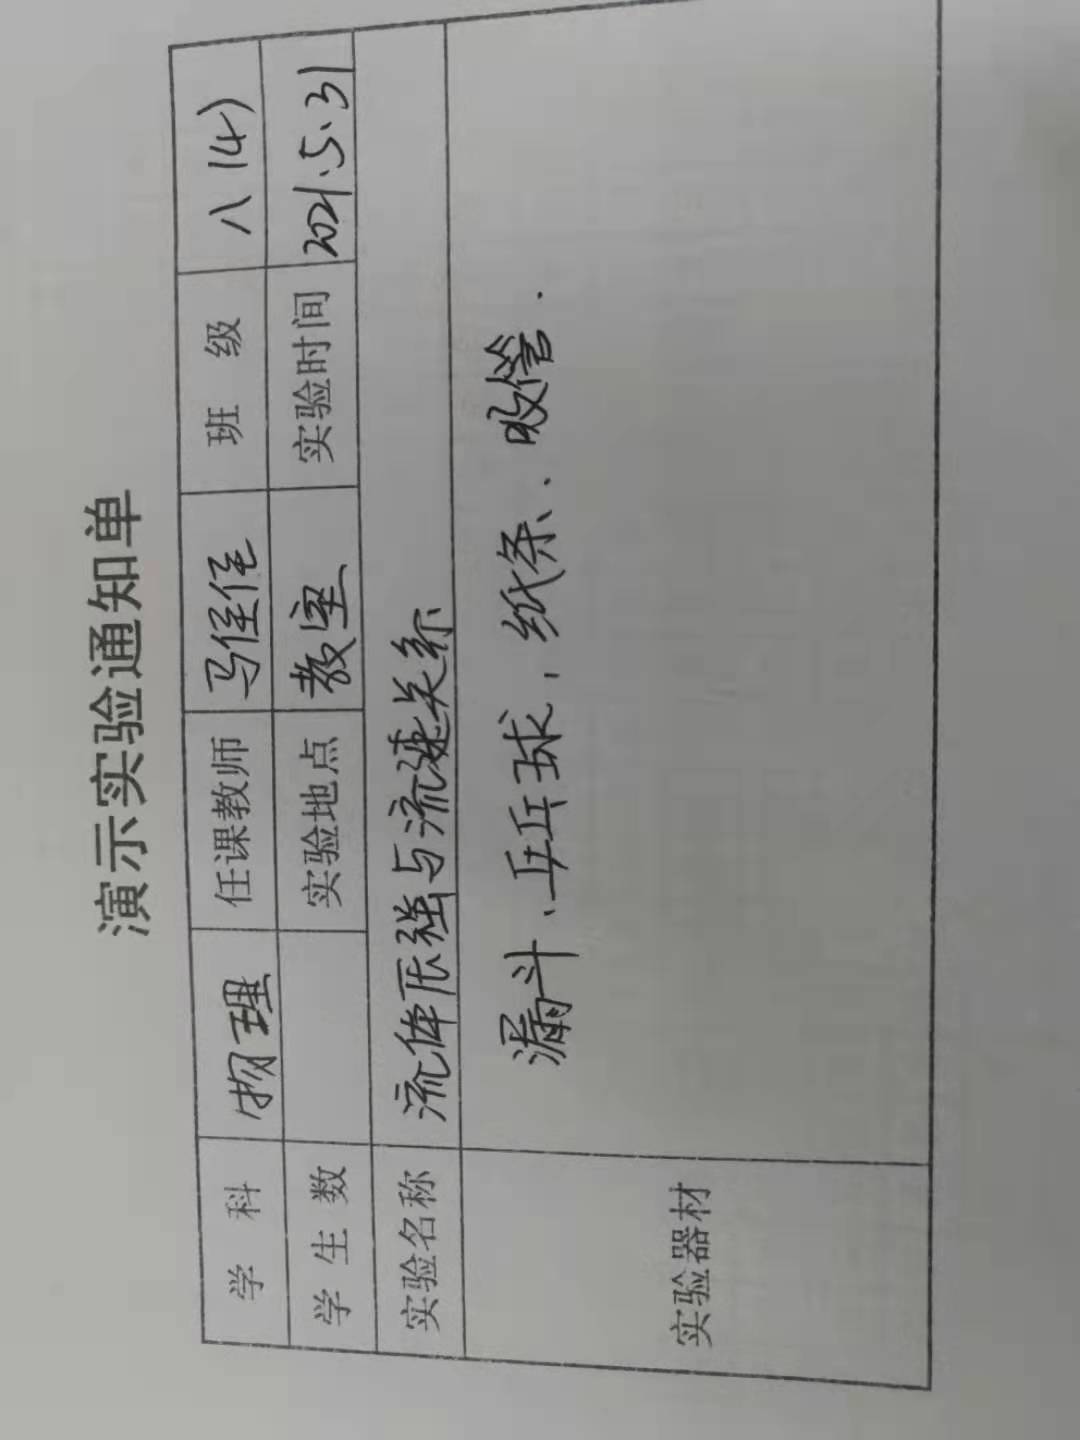 演示实验通知单
学 科 物理 任课教师 马佳佳 班 级 八(4)
学生数 实验地点 教室 实验时间 2021.5.31
实验名称 流体压强与流速关系
实验器材 漏斗、乒乓球,纸条、吸管.